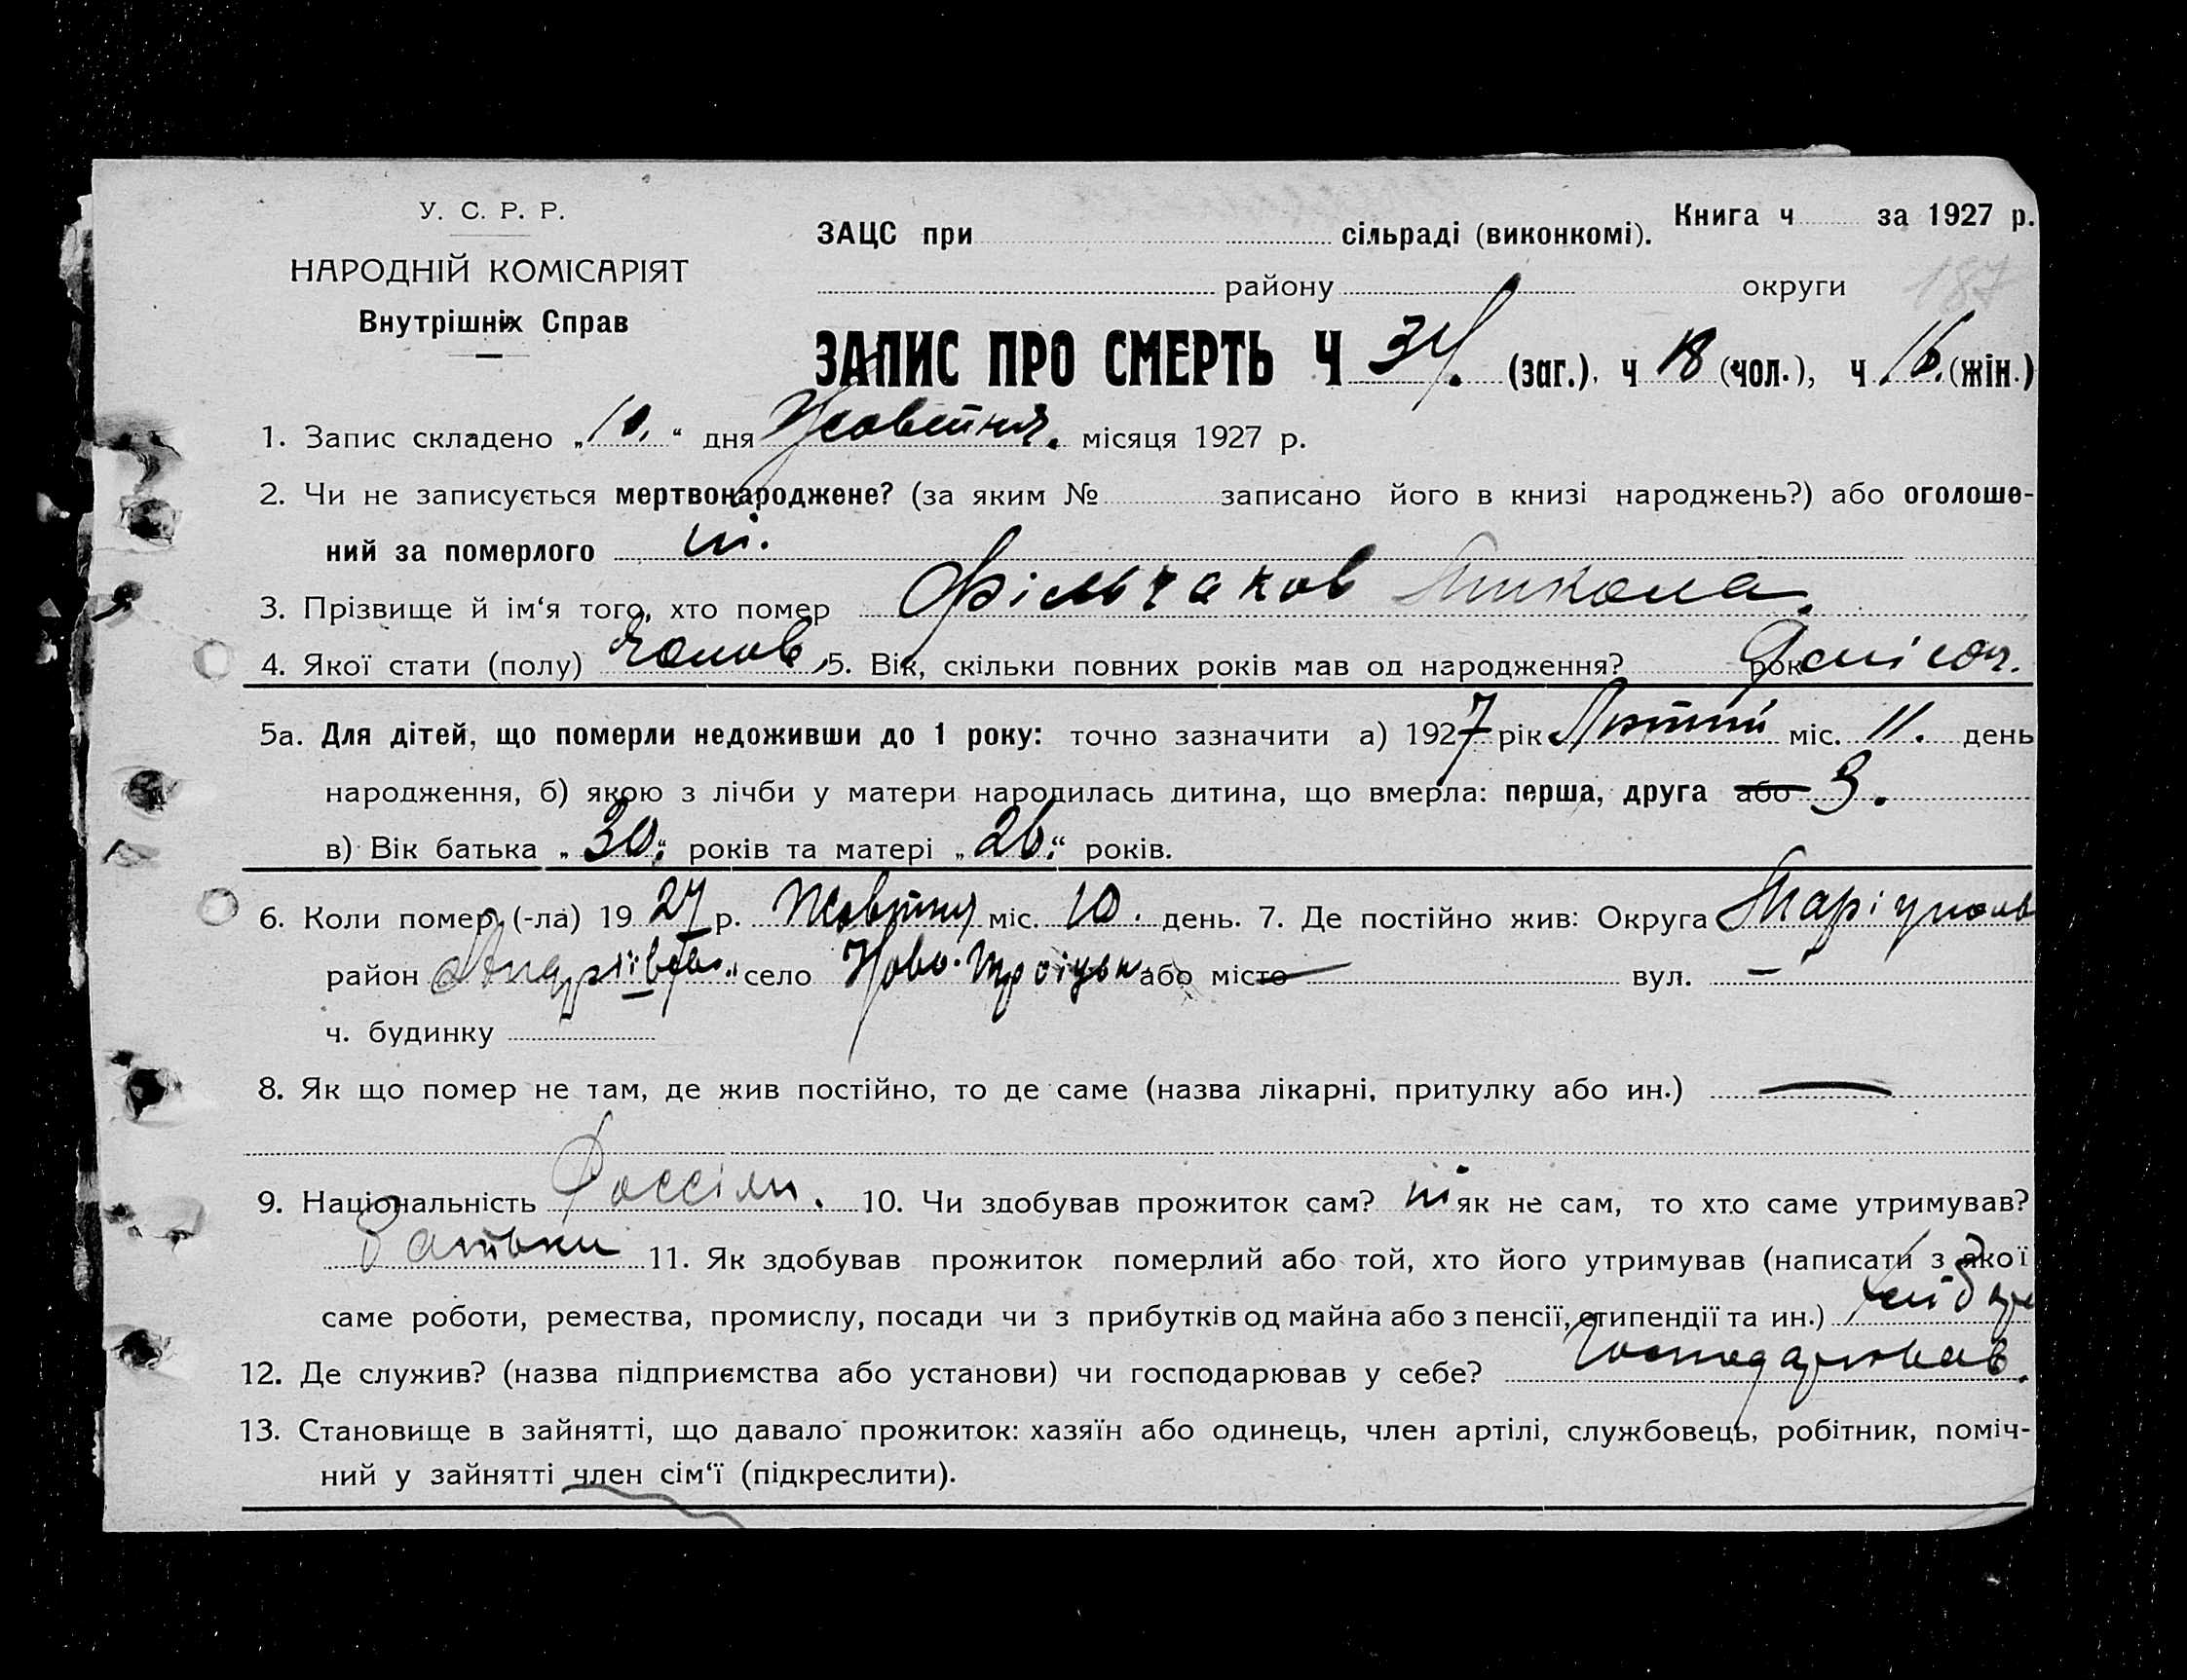 У. С. Р. Р.
НАРОДНІЙ КОМІСАРІЯТ
Внутрішніх Справ
Книга ч за 1927 р.
ЗАЦС при сільраді (виконкомі).
району округи
187
ЗАПИС ПРО СМЕРТЬ Ч 34. (заг.), ч 18 (чол.), ч 16. (жін.)
1. Запис складено „10.“ дня Жовтня. місяця 1927 р.
2. Чи не записується мертвонароджене? (за яким № записано його в книзі народжень?) або оголоше-
ний за померлого ні.
3. Прізвище й ім‘я того, хто помер Фільчаков Микола.
4. Якої стати (полу) Чолов. 5. Вік, скільки повних років мав од народження? рок
5а. Для дітей, що померли недоживши до 1 року: точно зазначити а) 1927 рік Лютий міс. 11. день
народження, б) якою з лічби у матери народилась дитина, що вмерла: перша, друга або 3.
в) Вік батька „30.“ років та матері „26.“ років.
6. Коли помер (-ла) 1927 р. Жовтня міс. 10. день. 7. Де постійно жив: Округа Маріуполь
район Андріївськ. село Ново-Троіцьк або місто — вул. —
ч. будинку
8. Як що помер не там, де жив постійно, то де саме (назва лікарні, притулку або ин.) —
9. Національність Россіян. 10. Чи здобував прожиток сам? ні як не сам, то хто саме утримував?
Батьки 11. Як здобував прожиток померлий або той, хто його утримував (написати з якої
саме роботи, ремества, промислу, посади чи з прибутків од майна або з пенсії, стипендії та ин.)
12. Де служив? (назва підприємства або установи) чи господарював у себе? Господарював.
13. Становище в зайнятті, що давало прожиток: хазяїн або одинець, член артілі, службовець, робітник, поміч-
ний у зайнятті член сім‘ї (підкреслити).